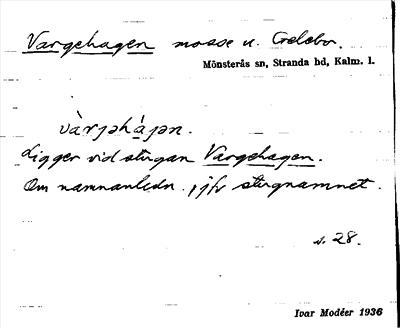 Vargehagen mosse u. Gelebo.
Mönsterås sn, Stranda hd, Kalm. l.
vàrjəhájən.
Ligger vid stugan Vargehagen.
Om namnanledn. jfr stugnamnet.
s. 28.
Ivar Modéer 1936